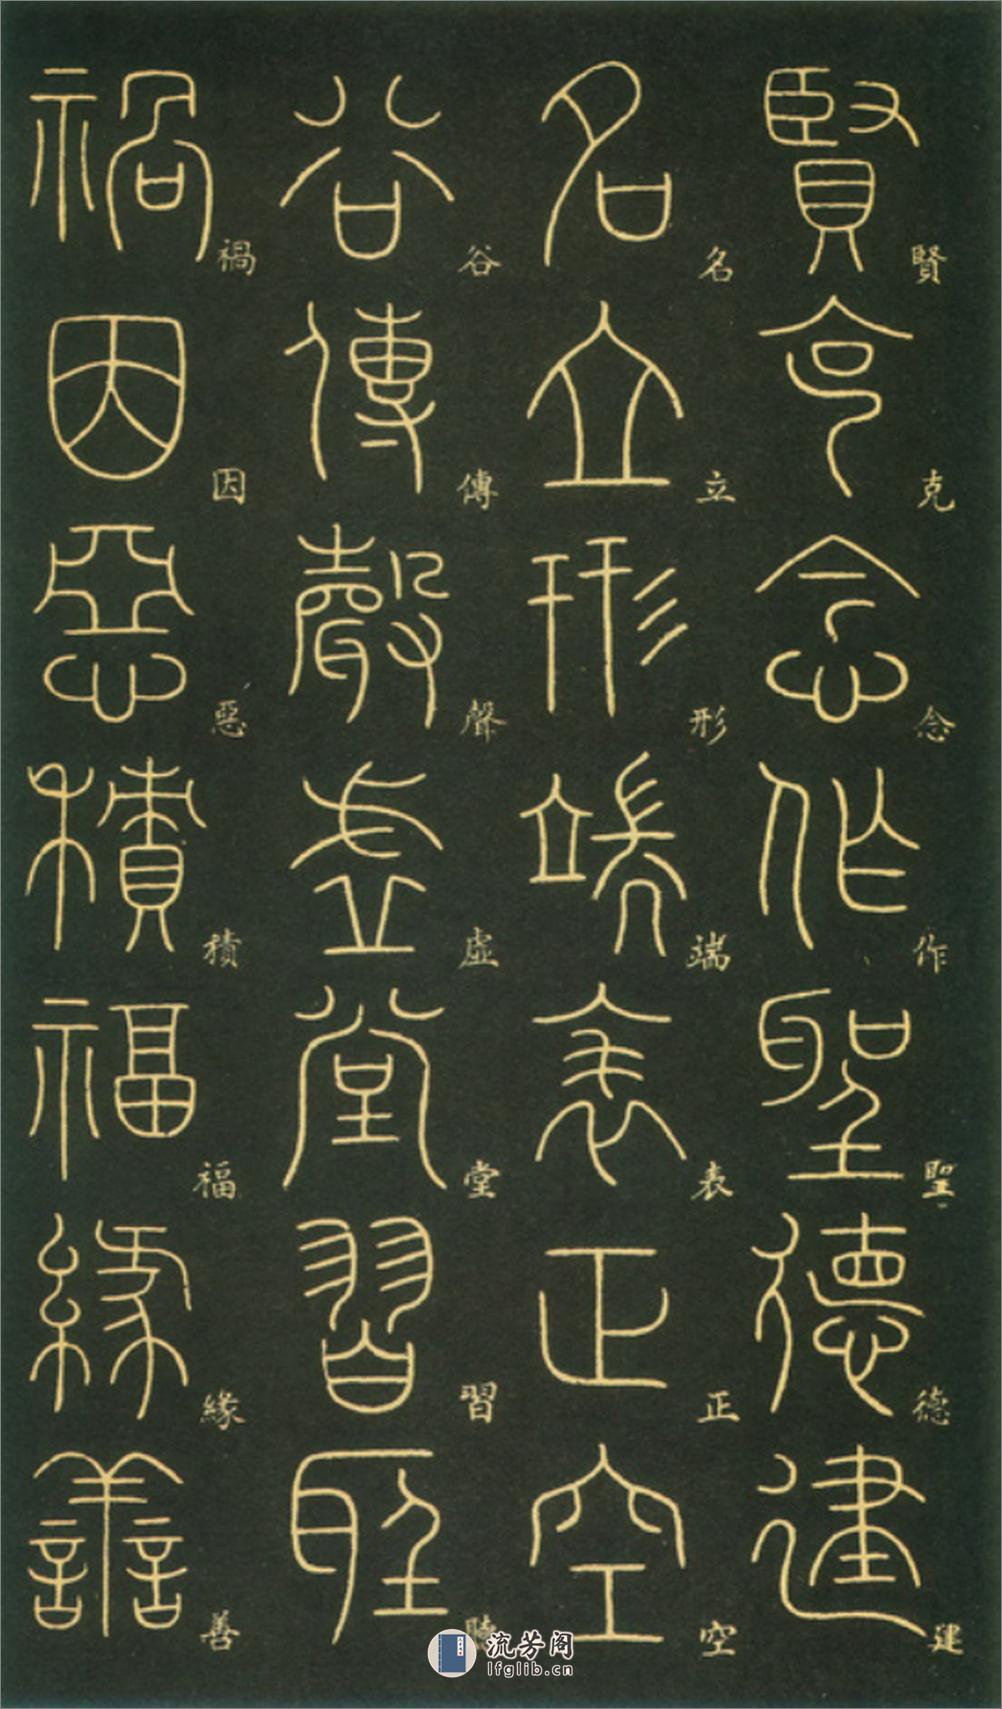 賢克念作聖德建
名立形端表正空
谷傳聲虛堂習聽
禍因惡積福緣善
流芳阁
lfglib.cn